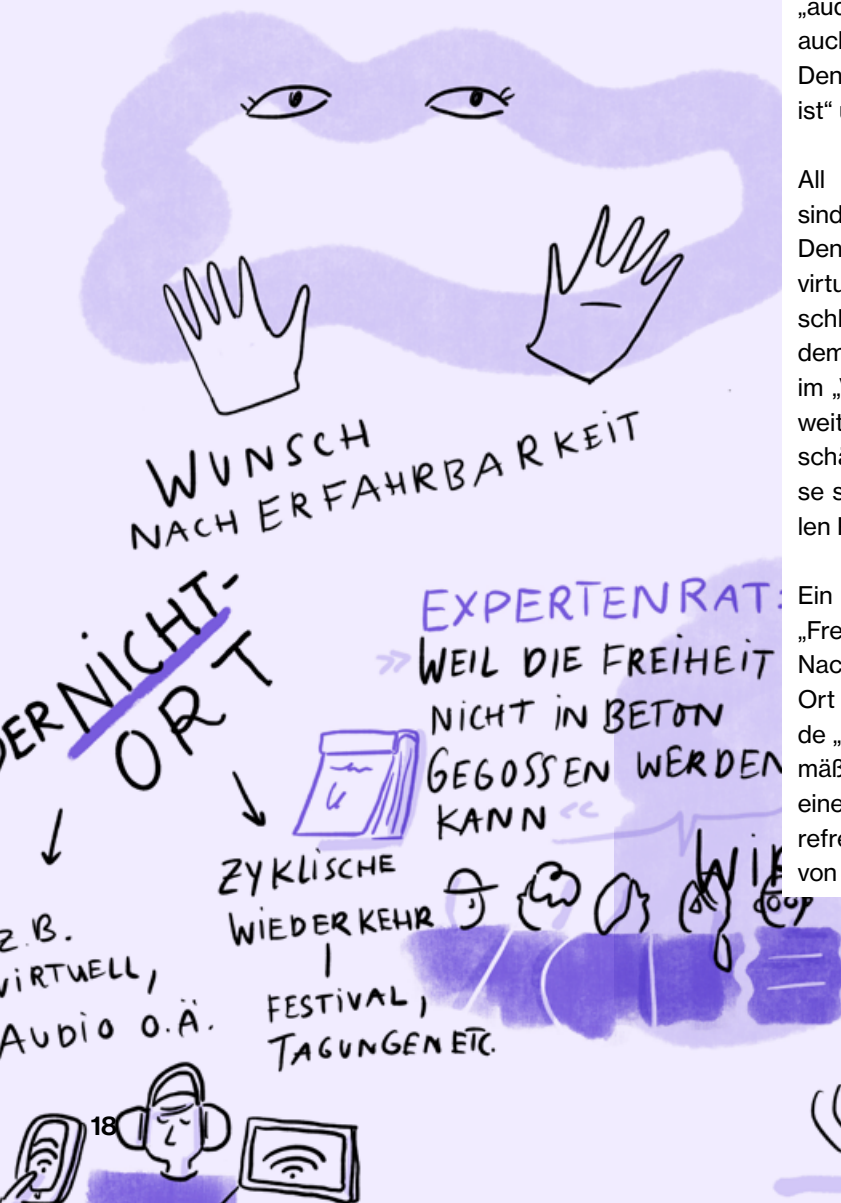 WUNSCH
NACH ERFAHRBARKEIT
DER NICHT-
ORT
z.B.
VIRTUELL,
AUDIO O.Ä.
ZYKLISCHE
WIEDERKEHR
FESTIVAL,
TAGUNGEN ETC.
EXPERTENRAT:
»WEIL DIE FREIHEIT
NICHT IN BETON
GEGOSSEN WERDEN
KANN«
WIR
18
auch
Den
ist“
All
sind
Den
virtu
schl
dem
im „
weit
schä
se s
len
Ein
„Fre
Nac
Ort
de „
mäß
eine
refre
von